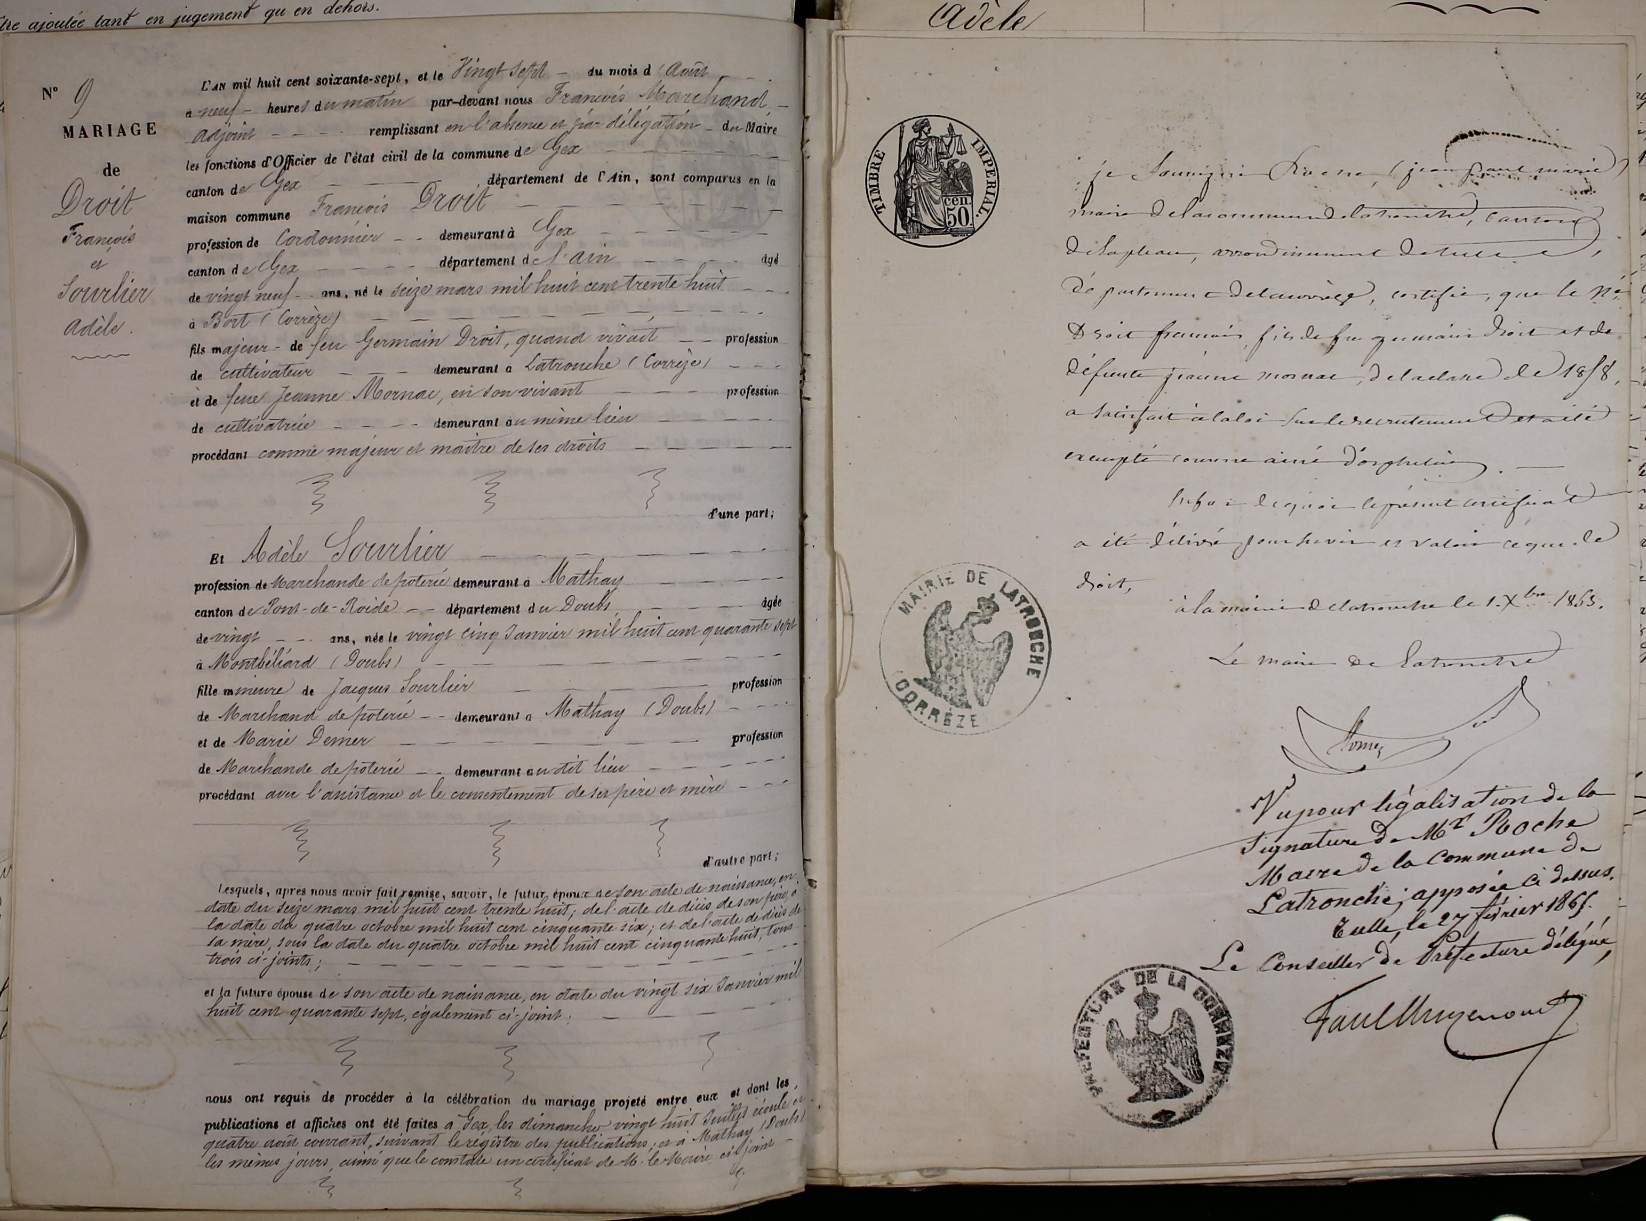 tre ajoutée tant en jugement qu'en dehors.
N° 9
MARIAGE
de
Droit
François
et
Sourlier
Adèle.
L'AN mil huit cent soixante-sept, et le Vingt Sept du mois d'Août
à neuf heures du matin par-devant nous François Marchand
Adjoint remplissant en l'absence et par délégation du Maire
les fonctions d'Officier de l'état civil de la commune de Gex
canton de Gex département de l'Ain, sont comparus en la
maison commune François Droit
profession de Cordonnier demeurant à Gex
canton de Gex département de l'ain âgé
de vingt neuf ans, né le seize mars mil huit cent trente huit
à Bort (Corrèze)
fils majeur de feu Germain Droit, quand vivait profession
de cultivateur demeurant à Latronche (Corrèze)
et de feue Jeanne Mornac, en son vivant profession
de cultivatrice demeurant au même lieu
procédant comme majeur et maître de ses droits
d'une part;
Et Adèle Sourlier
profession de Marchande de poterie demeurant à Mathay
canton de Pont-de-Roide département du Doubs âgée
de vingt ans, née le vingt cinq Janvier mil huit cent quarante sept
à Montbéliard (Doubs)
fille mineure de Jacques Sourlier profession
de Marchand de poterie demeurant à Mathay (Doubs)
et de Marie Demer profession
de Marchande de poterie demeurant au dit lieu
procédant avec l'assistance et le consentement de ses père et mère
d'autre part;
Lesquels, après nous avoir fait remise, savoir, le futur époux de son acte de naissance, en
date du seize mars mil huit cent trente huit; de l'acte de décès de son père, à
la date du quatre octobre mil huit cent cinquante six; et de l'acte de décès de
sa mère, sous la date du quatre octobre mil huit cent cinquante huit, tous
trois ci-joints;
et la future épouse de son acte de naissance, en date du vingt six Janvier mil
huit cent quarante sept, également ci-joint;
nous ont requis de procéder à la célébration du mariage projeté entre eux et dont les
publications et affiches ont été faites à Gex, les dimanches vingt huit Juillet écoulé et
quatre août courant, suivant le registre des publications; et à Mathay (Doubs)
les mêmes jours, ainsi que le constate un certificat de M. le Maire ci-joint
Adèle
TIMBRE IMPERIAL
50 cen.
je soussigné Roche, (jean paul marie)
maire de la commune de latronche, canton
de lapleau, arrondissement de tulle,
département de la corrèze, certifie, que le né
Droit francois, fils de feu germain droit et de
défunte jeanne mornac, de la classe de 1858,
a satisfait à la loi sur le recrutement et a été
exempté comme ainé d'orphelins.
En foi de quoi le présent certificat
a été délivré pour servir et valoir ce que de
droit,
à la mairie de latronche le 1. Xbre 1865.
Le maire de latronche
MAIRIE DE LATRONCHE
CORRÈZE
Vu pour légalisation de la
signature de Mr Roche
Maire de la Commune de
Latronche, apposée ci dessus.
Tulle, le 27 février 186
Le Conseiller de Préfecture délégué,
PREFECTURE DE LA CORREZE